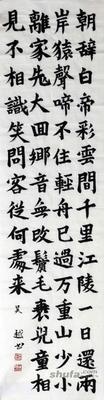 朝辭白帝彩雲間千里江陵一日還兩
岸猿聲啼不住輕舟已過万重山少小
離家老大回鄉音無改鬢毛衰兒童相
見不相識笑問客從何處來